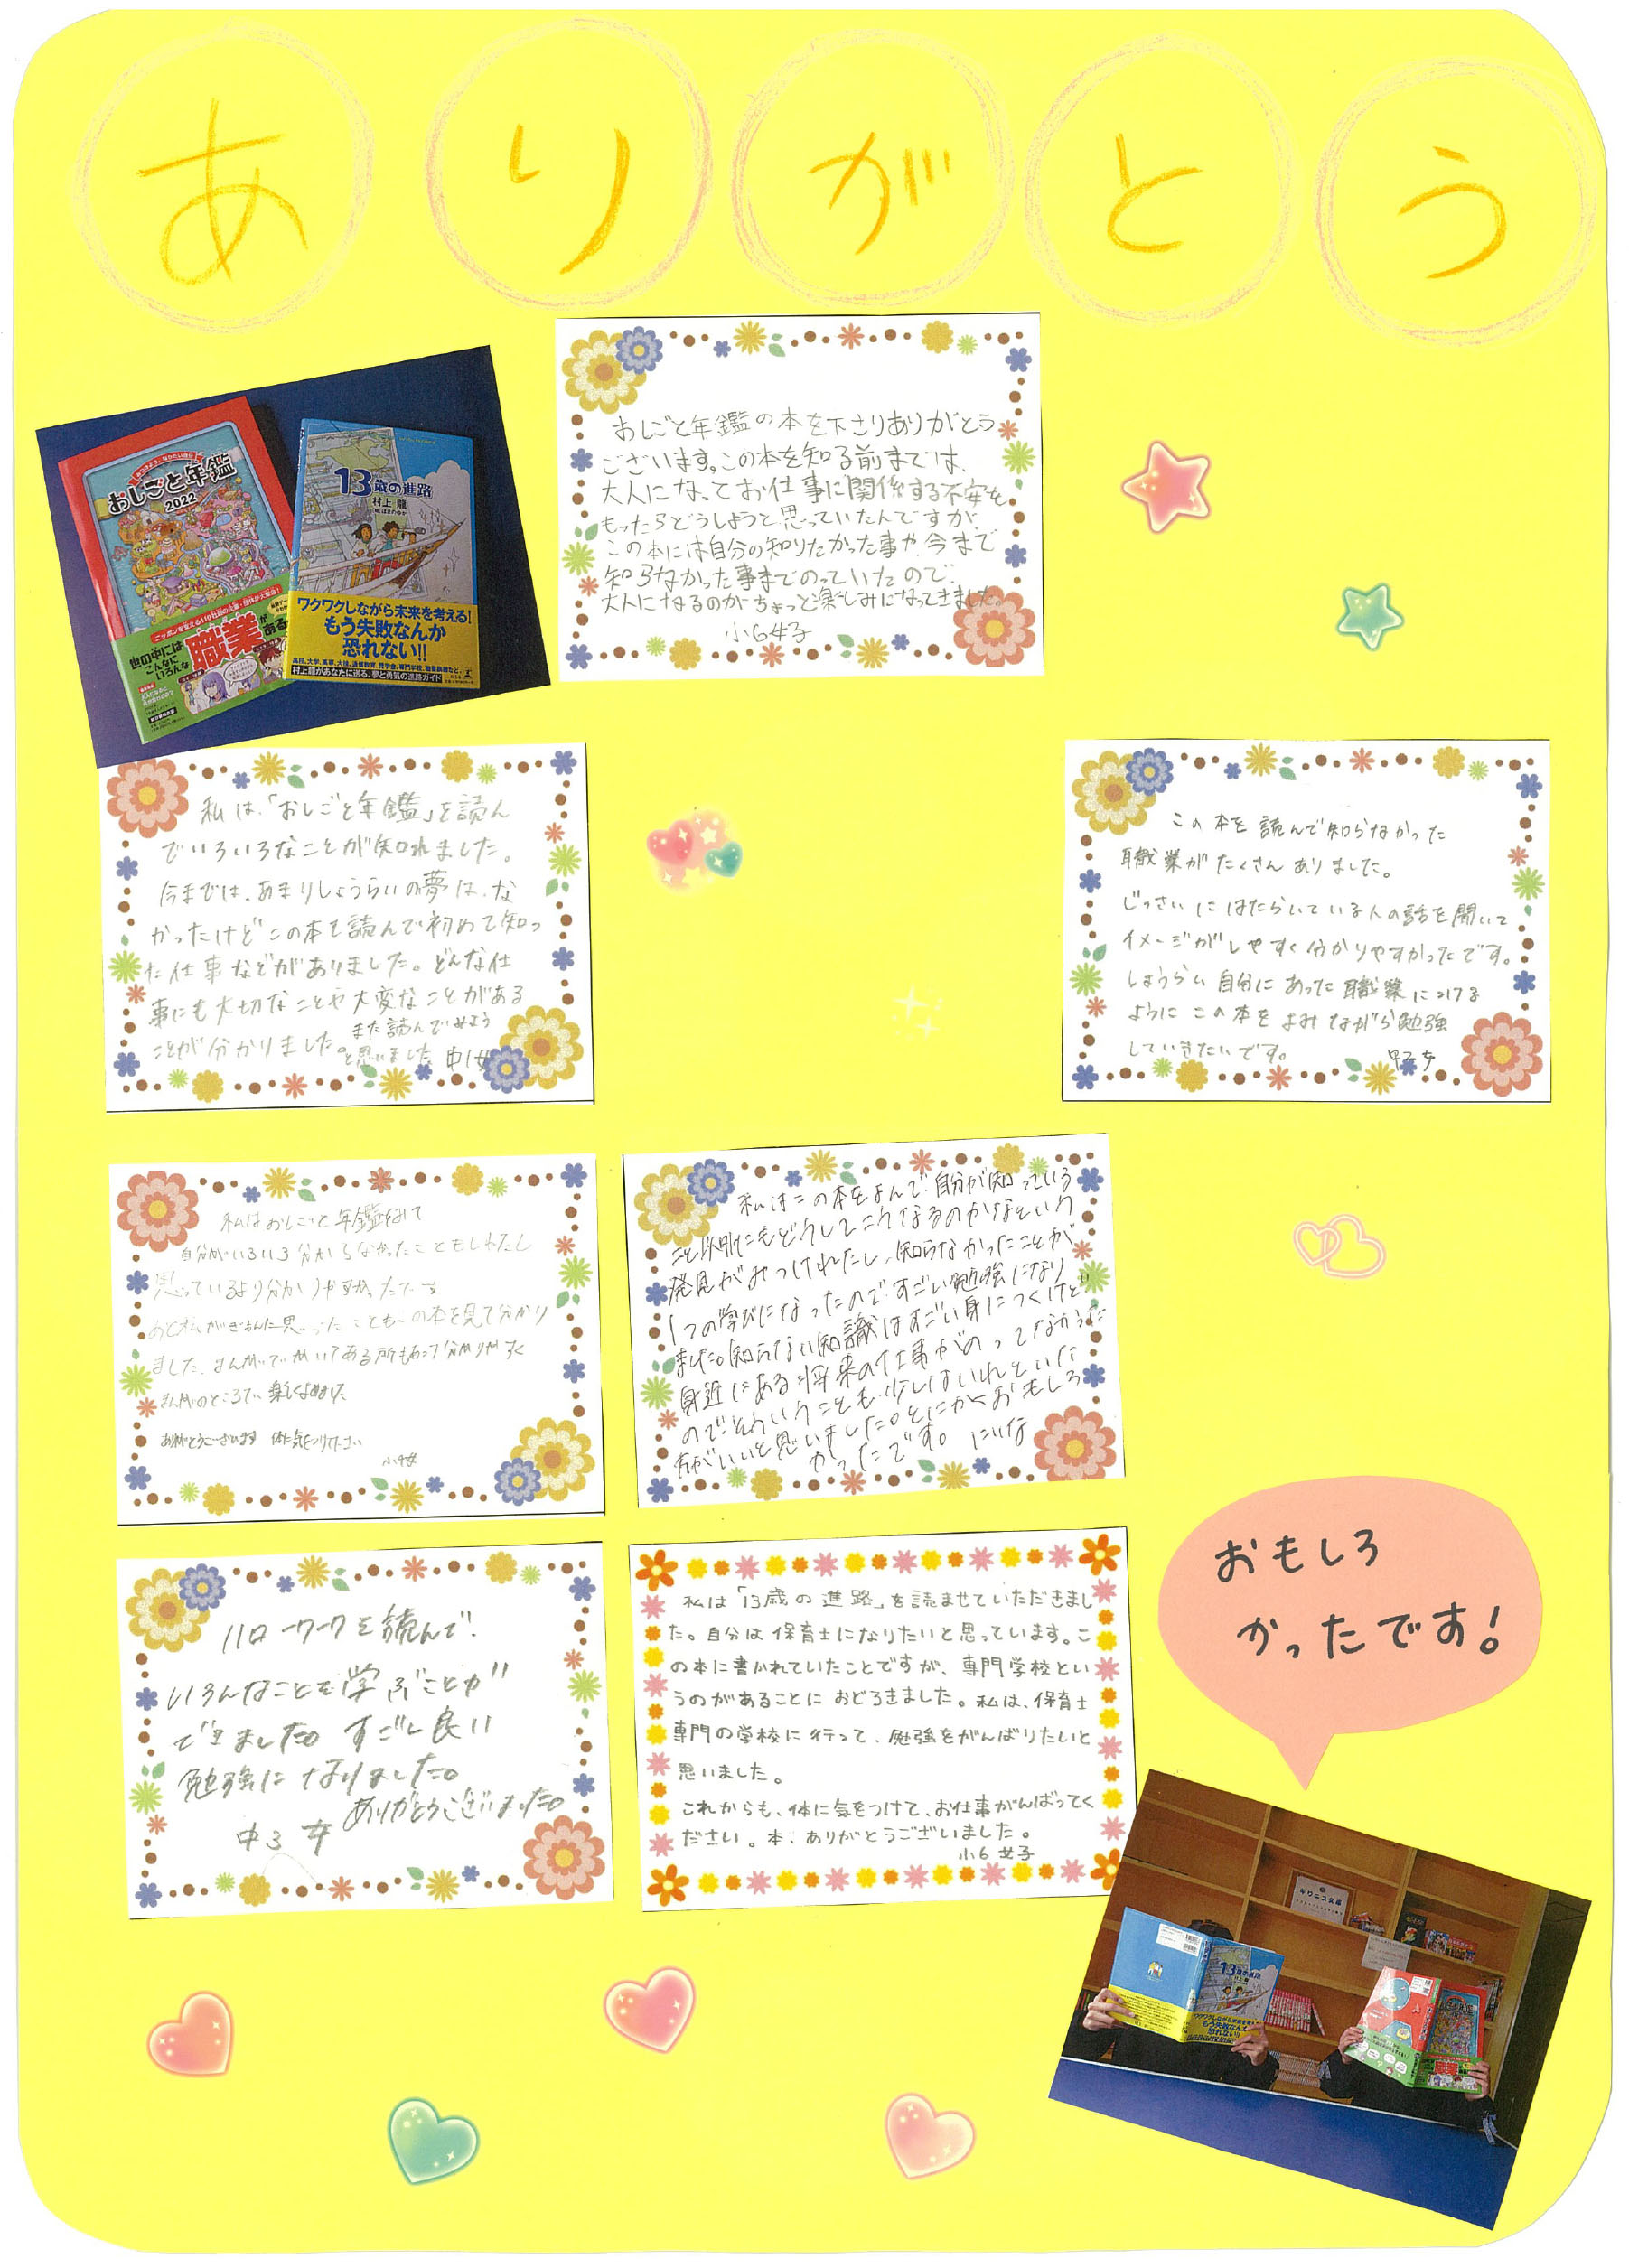 ありがとう
おしごと年鑑
2022
職業
世の中には
こんなに
いろんな
ある
13歳の進路
村上 龍
ワクワクしながら未来を考える!
もう失敗なんか
恐れない!!
村上龍があなたに送る、夢と勇気の進路ガイド
おしごと年鑑の本を下さりありがとう
ございます。この本を知る前までは、
大人になってお仕事に関係する不安を
もったらどうしようと思っていたんですが
この本には自分の知りたかった事や、今まで
知らなかった事までのっていたので、
大人になるのがちょっと楽しみになってきました。
小6女子
私は、「おしごと年鑑」を読ん
でいろいろなことが知れました。
今までは、あまりしょうらいの夢は、な
かったけどこの本を読んで初めて知っ
た仕事などがありました。どんな仕
事にも大切なことや大変なことがある
ことが分かりました。また読んでみよう
と思いました 中1女
この本を読んで知らなかった
職業がたくさんありました。
じっさいにはたらいている人の話を聞いて
イメージがしやすく分かりやすかったです。
しょうらい自分にあった職業につける
ように この本をよみながら勉強
していきたいです。
中2女
私はおしごと年鑑をみて
自分がいろいろ分からなかったこともしれたし
思っているより分かりやすかったです
ました。まんがでかいてある所もあって分かりやすく
まんがのところで、楽しくよめました
ありがとうございます 体に気をつけて下さい
私はこの本をよんで、自分が知っている
こと以外にもどうしてこうなるのかなという
発見がみつけれたし、知らなかったことが
1つの学びになったので、すごい勉強になり
ました。知らない知識はすごい身につくけど
身近にある将来の仕事がのってなかった
のでそういうことも少しはいれといた
方がいいと思いました。とにかくおもしろ
かったです。 にいな
ハローワークを読んで、
いろんなことを学ぶことが
できました。すごく良い
勉強になりました。
ありがとうございました。
中3 女
私は「13歳の進路」を読ませていただきまし
た。自分は保育士になりたいと思っています。こ
の本に書かれていたことですが、専門学校とい
うのがあることに おどろきました。私は、保育士
専門の学校に行って、勉強をがんばりたいと
思いました。
これからも、体に気をつけて、お仕事がんばってく
ださい。本、ありがとうございました。
小6 女子
おもしろ
かったです!
13歳の進路
もう失敗なんて
恐れない!!